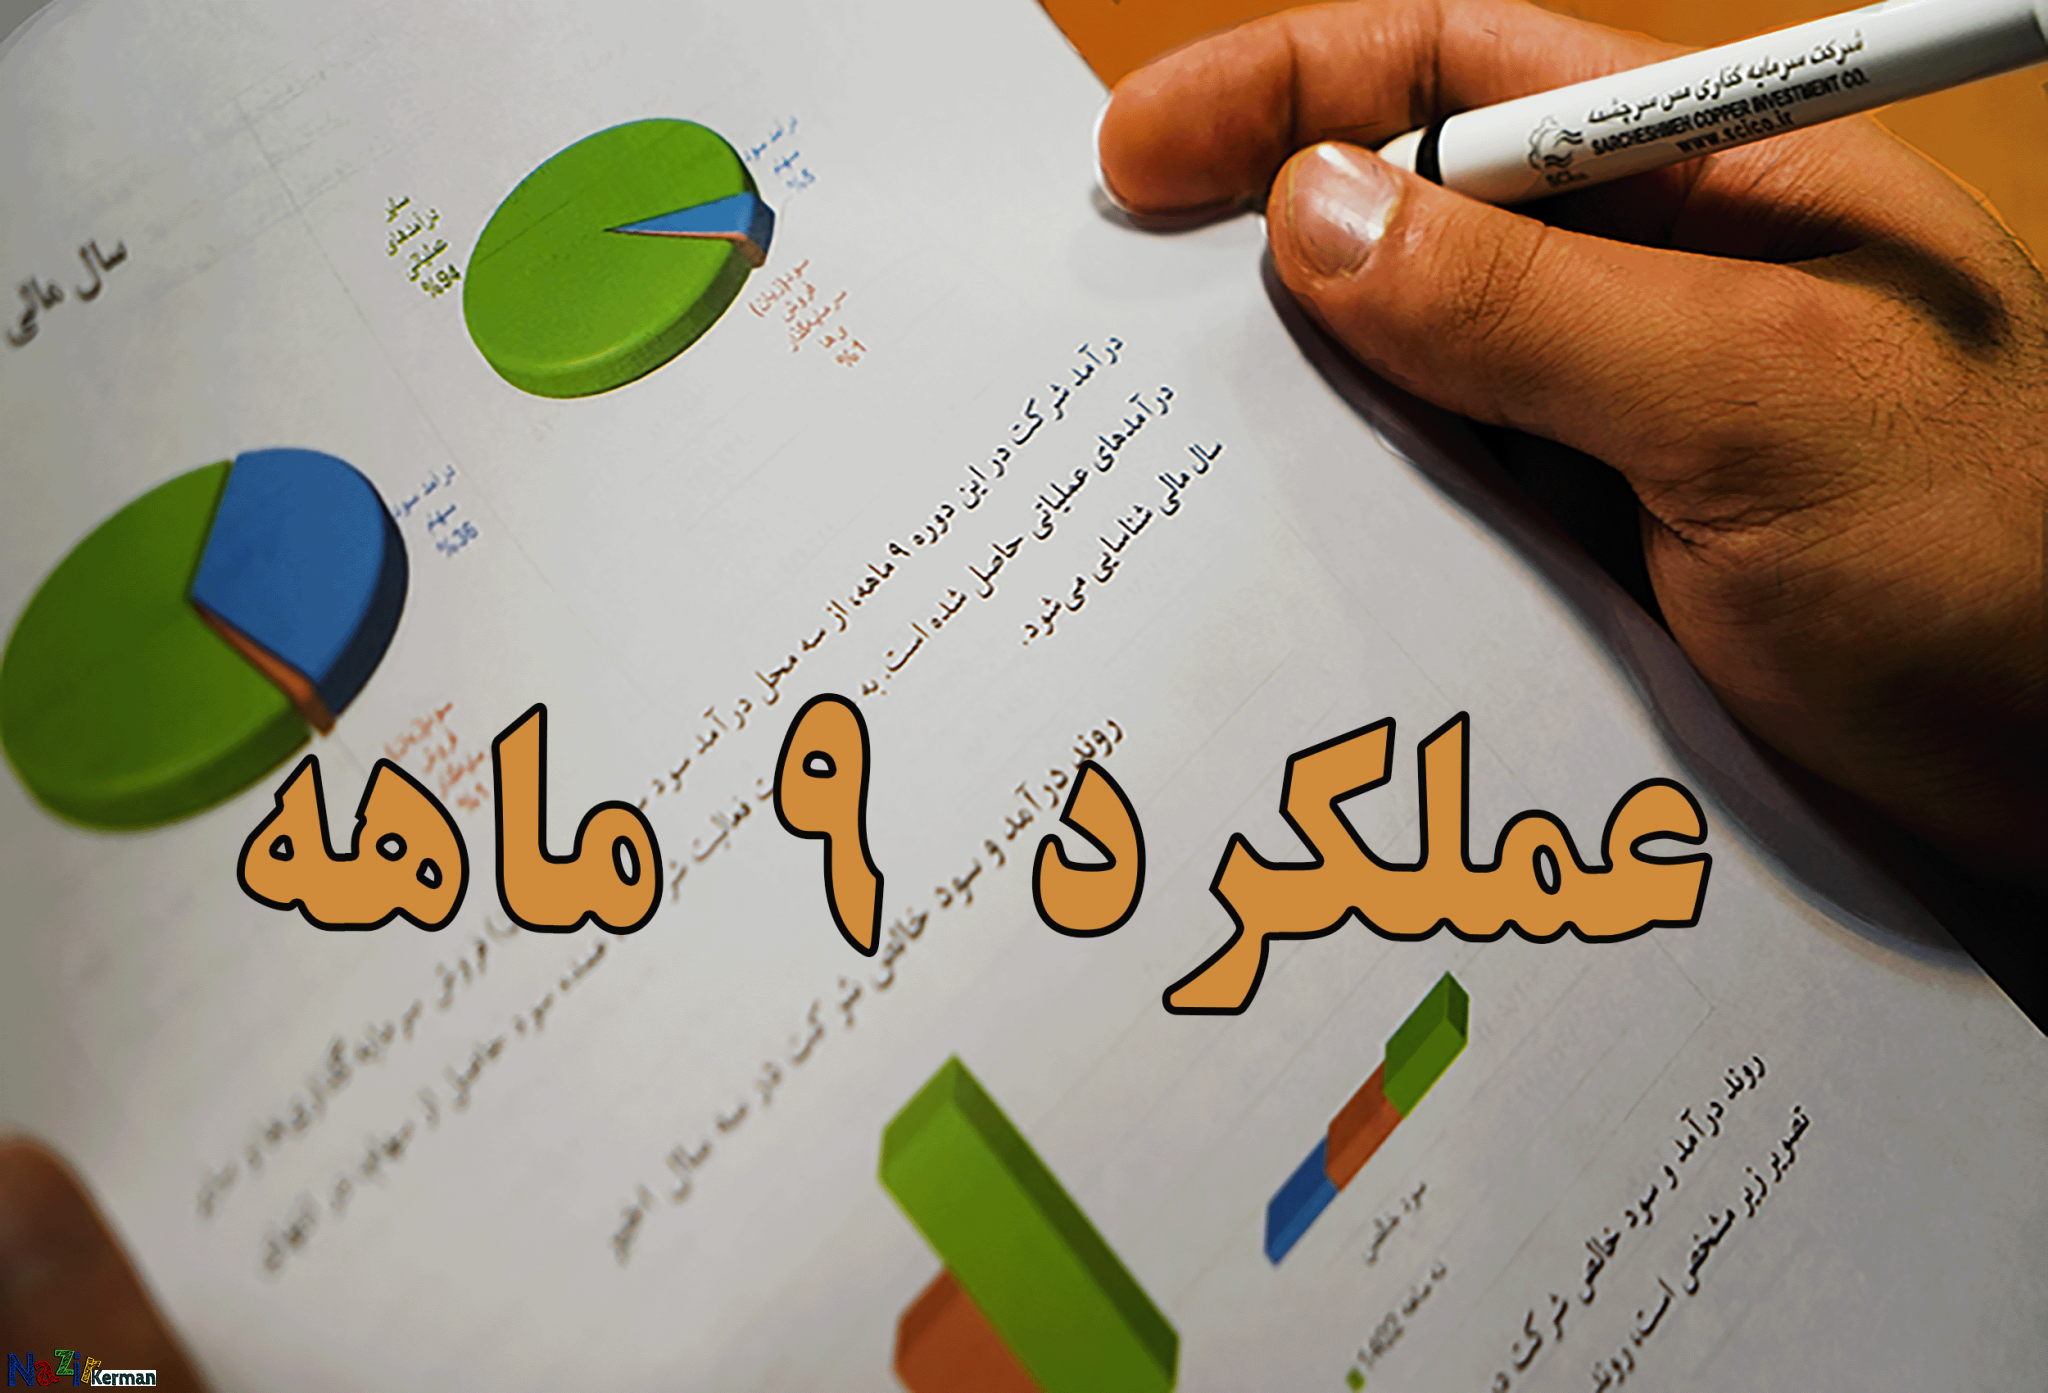 شرکت سرمایه گذاری مس سرچشمه
SARCHESHMEH COPPER INVESTMENT CO.
www.scico.ir
سال مالی
درآمد سود
سهم
%5
سایر
درآمدهای
عملیاتی
%94
سود(زیان)
فروش
سرمایه‌گذار
ی‌ها
%1
درآمد سود
سهم
%36
فروش
%1
درآمد شرکت در این دوره ۹ ماهه، از سه محل درآمد سود
درآمدهای عملیاتی حاصل شده است. به
سال مالی شناسایی می‌شود.
عملکرد ۹ ماهه
فعالیت
فروش سرمایه‌گذاری‌ها و سایر
عمده سود حاصل از سهام در انتهای
روند درآمد و سود خالص شرکت در سه سال اخیر
سود خالص
نه ماهه 1402
روند درآمد و سود خالص شرکت در
تصویر زیر مشخص است، روند
NaZik Kerman